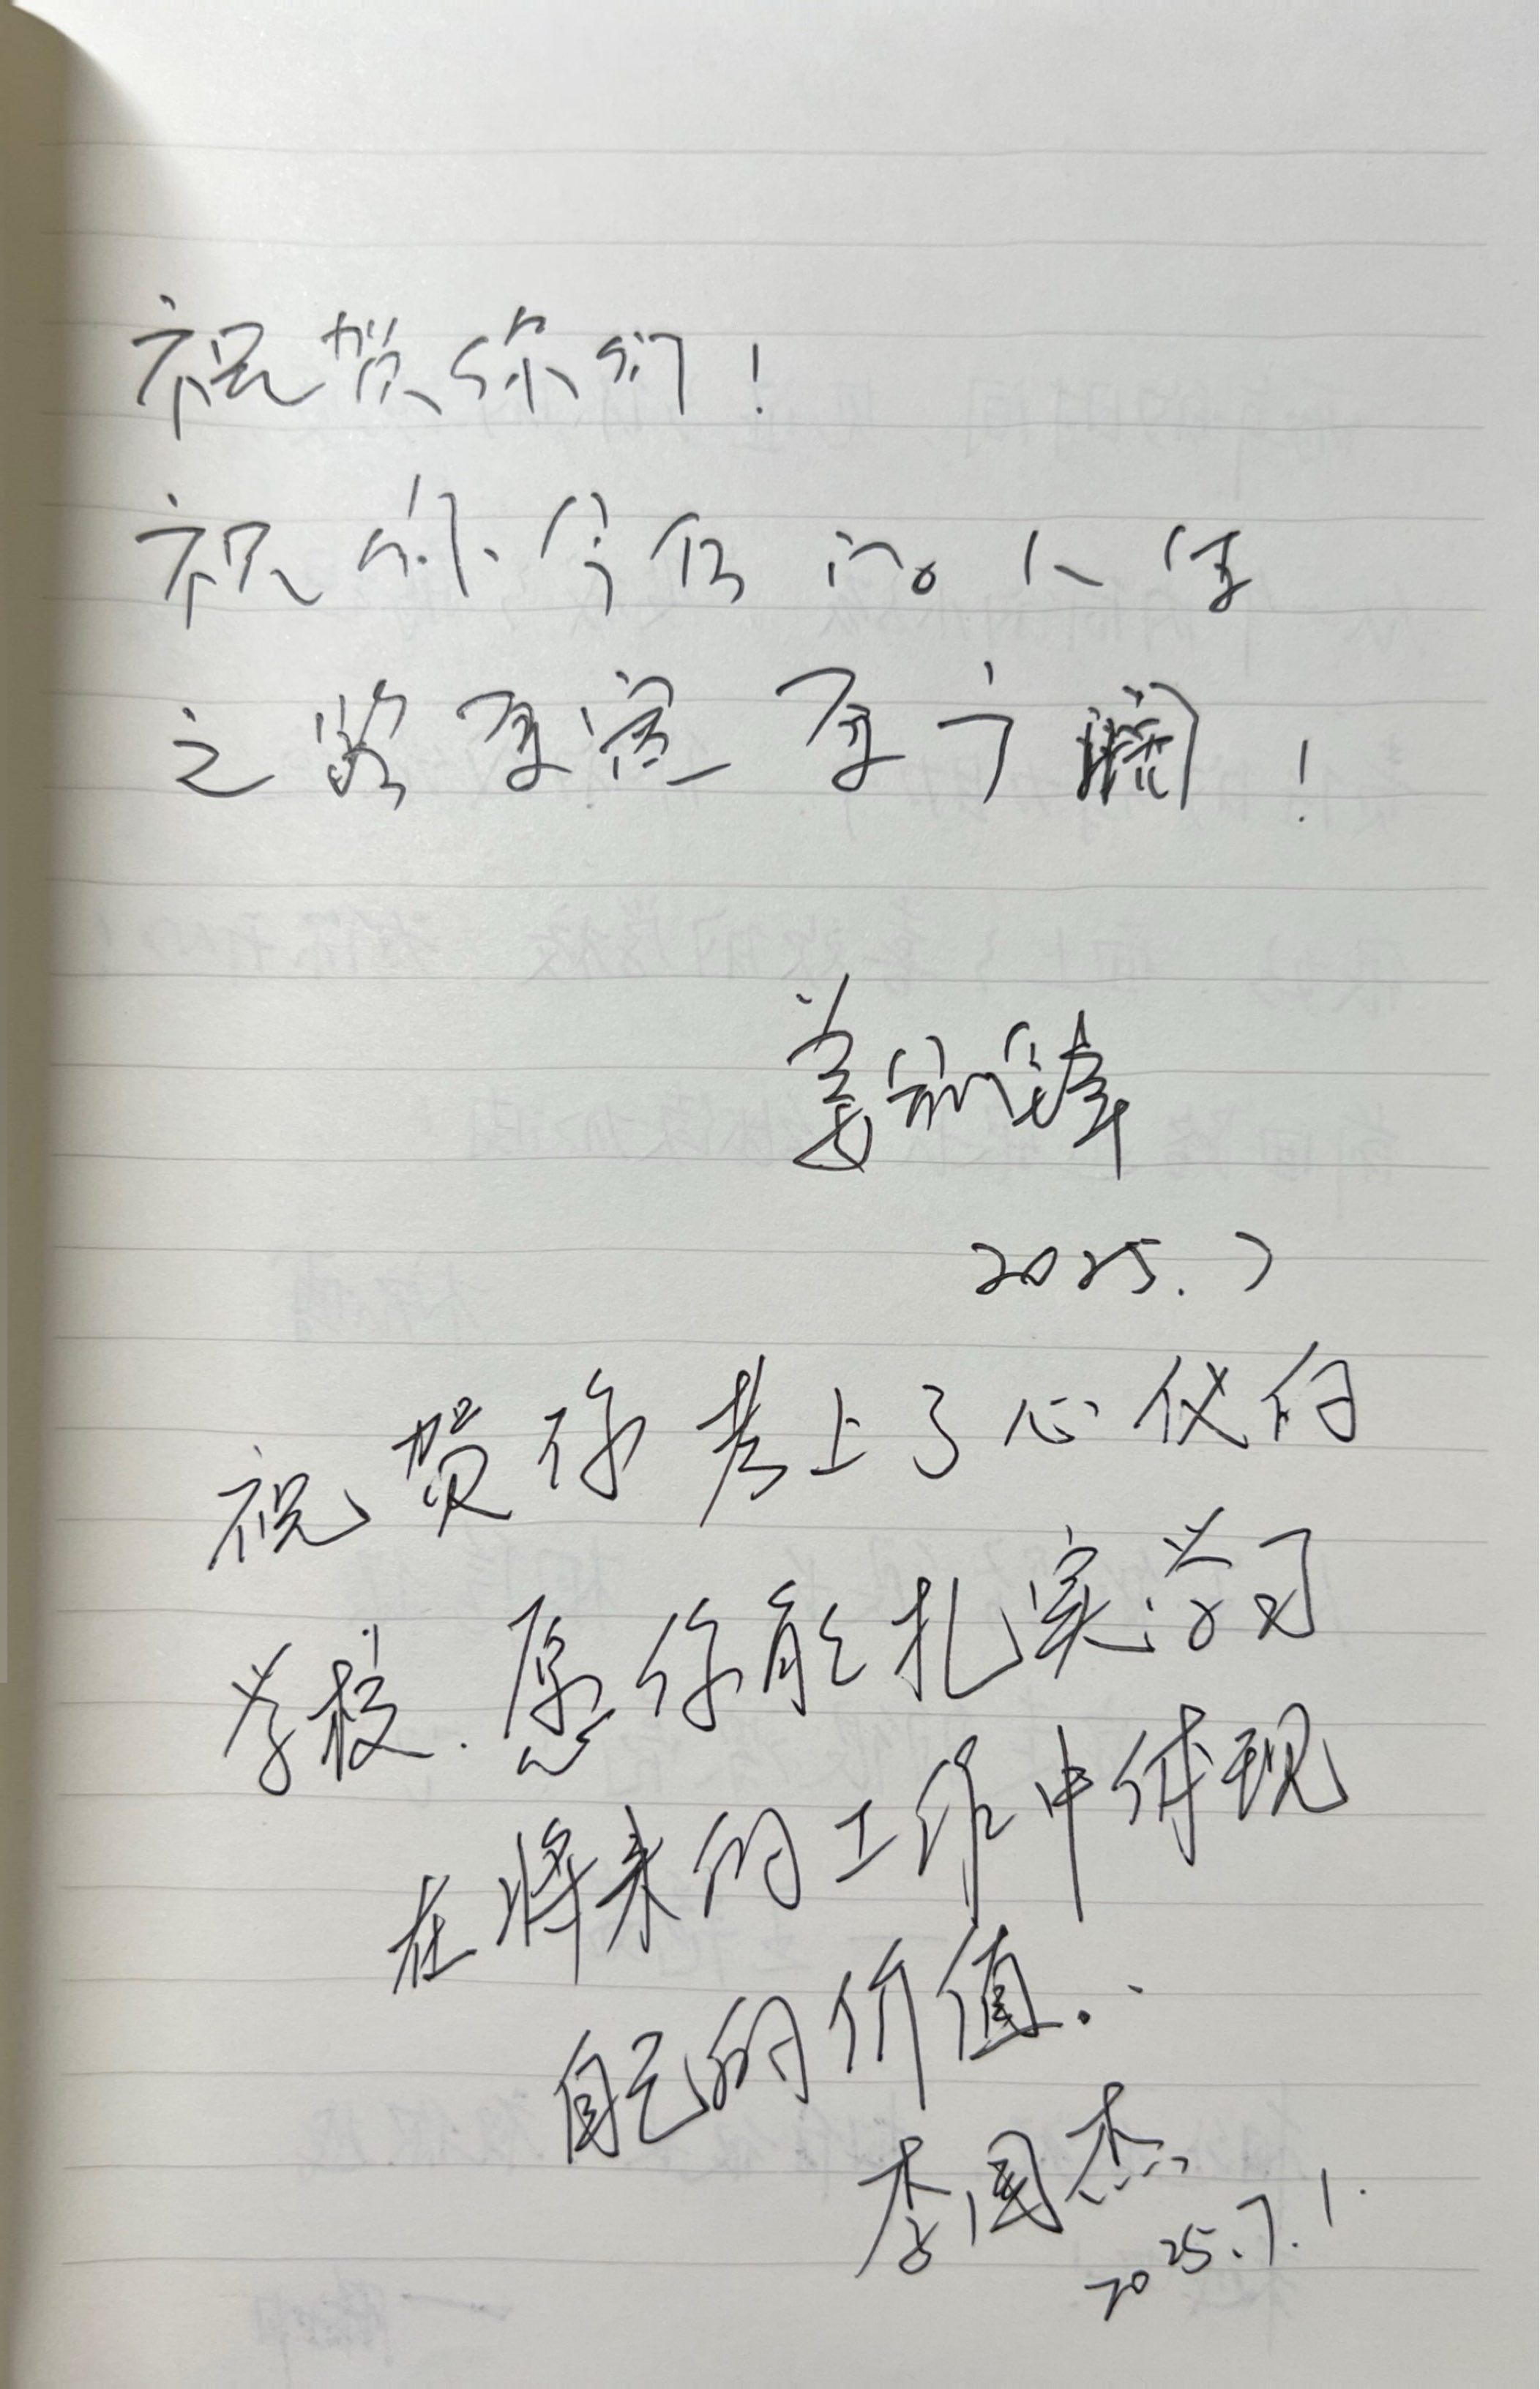 祝贺你们！
祝你今后的人生
之路更宽更广阔！
姜
2025.7
祝贺你考上了心仪的
学校.愿你能扎实学习
在将来的工作中体现
自己的价值.
李国杰
2025.7.1.